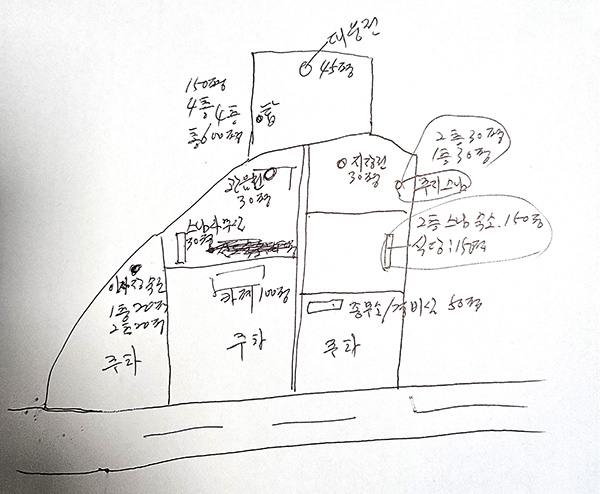 대웅전
45평
150평
4층
4층 탑
총600평
2층 30평
1층 30평
지장전
30평
주지스님
관음전
30평
스님사무실
30평
2층 스님 숙소. 150평
식당:150평
숙소
1층 20평
2층 20평
카페 100평
종무소/경비실 50평
주차
주차
주차